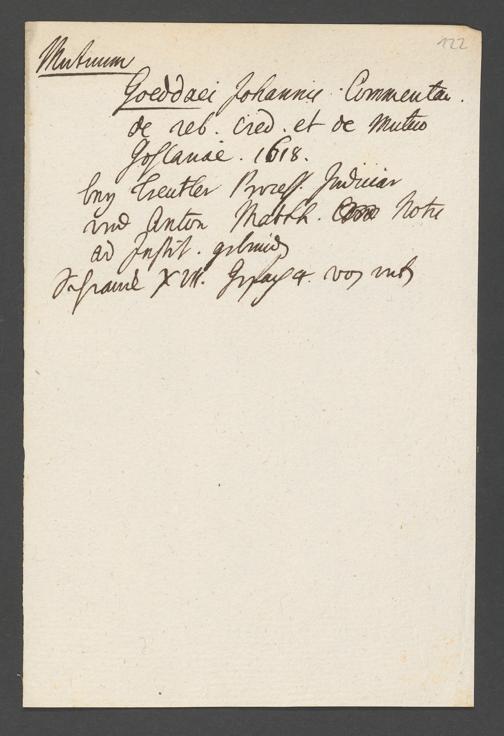 122
Mutuum
Goeddaei Johannis. Commentar.
de reb. cred. et de mutuo
Goslariae. 1618.
bey Treutler Process. Judiciar
und Anton Matth. Notis
ad Instit. gebund
XVII. 4. von